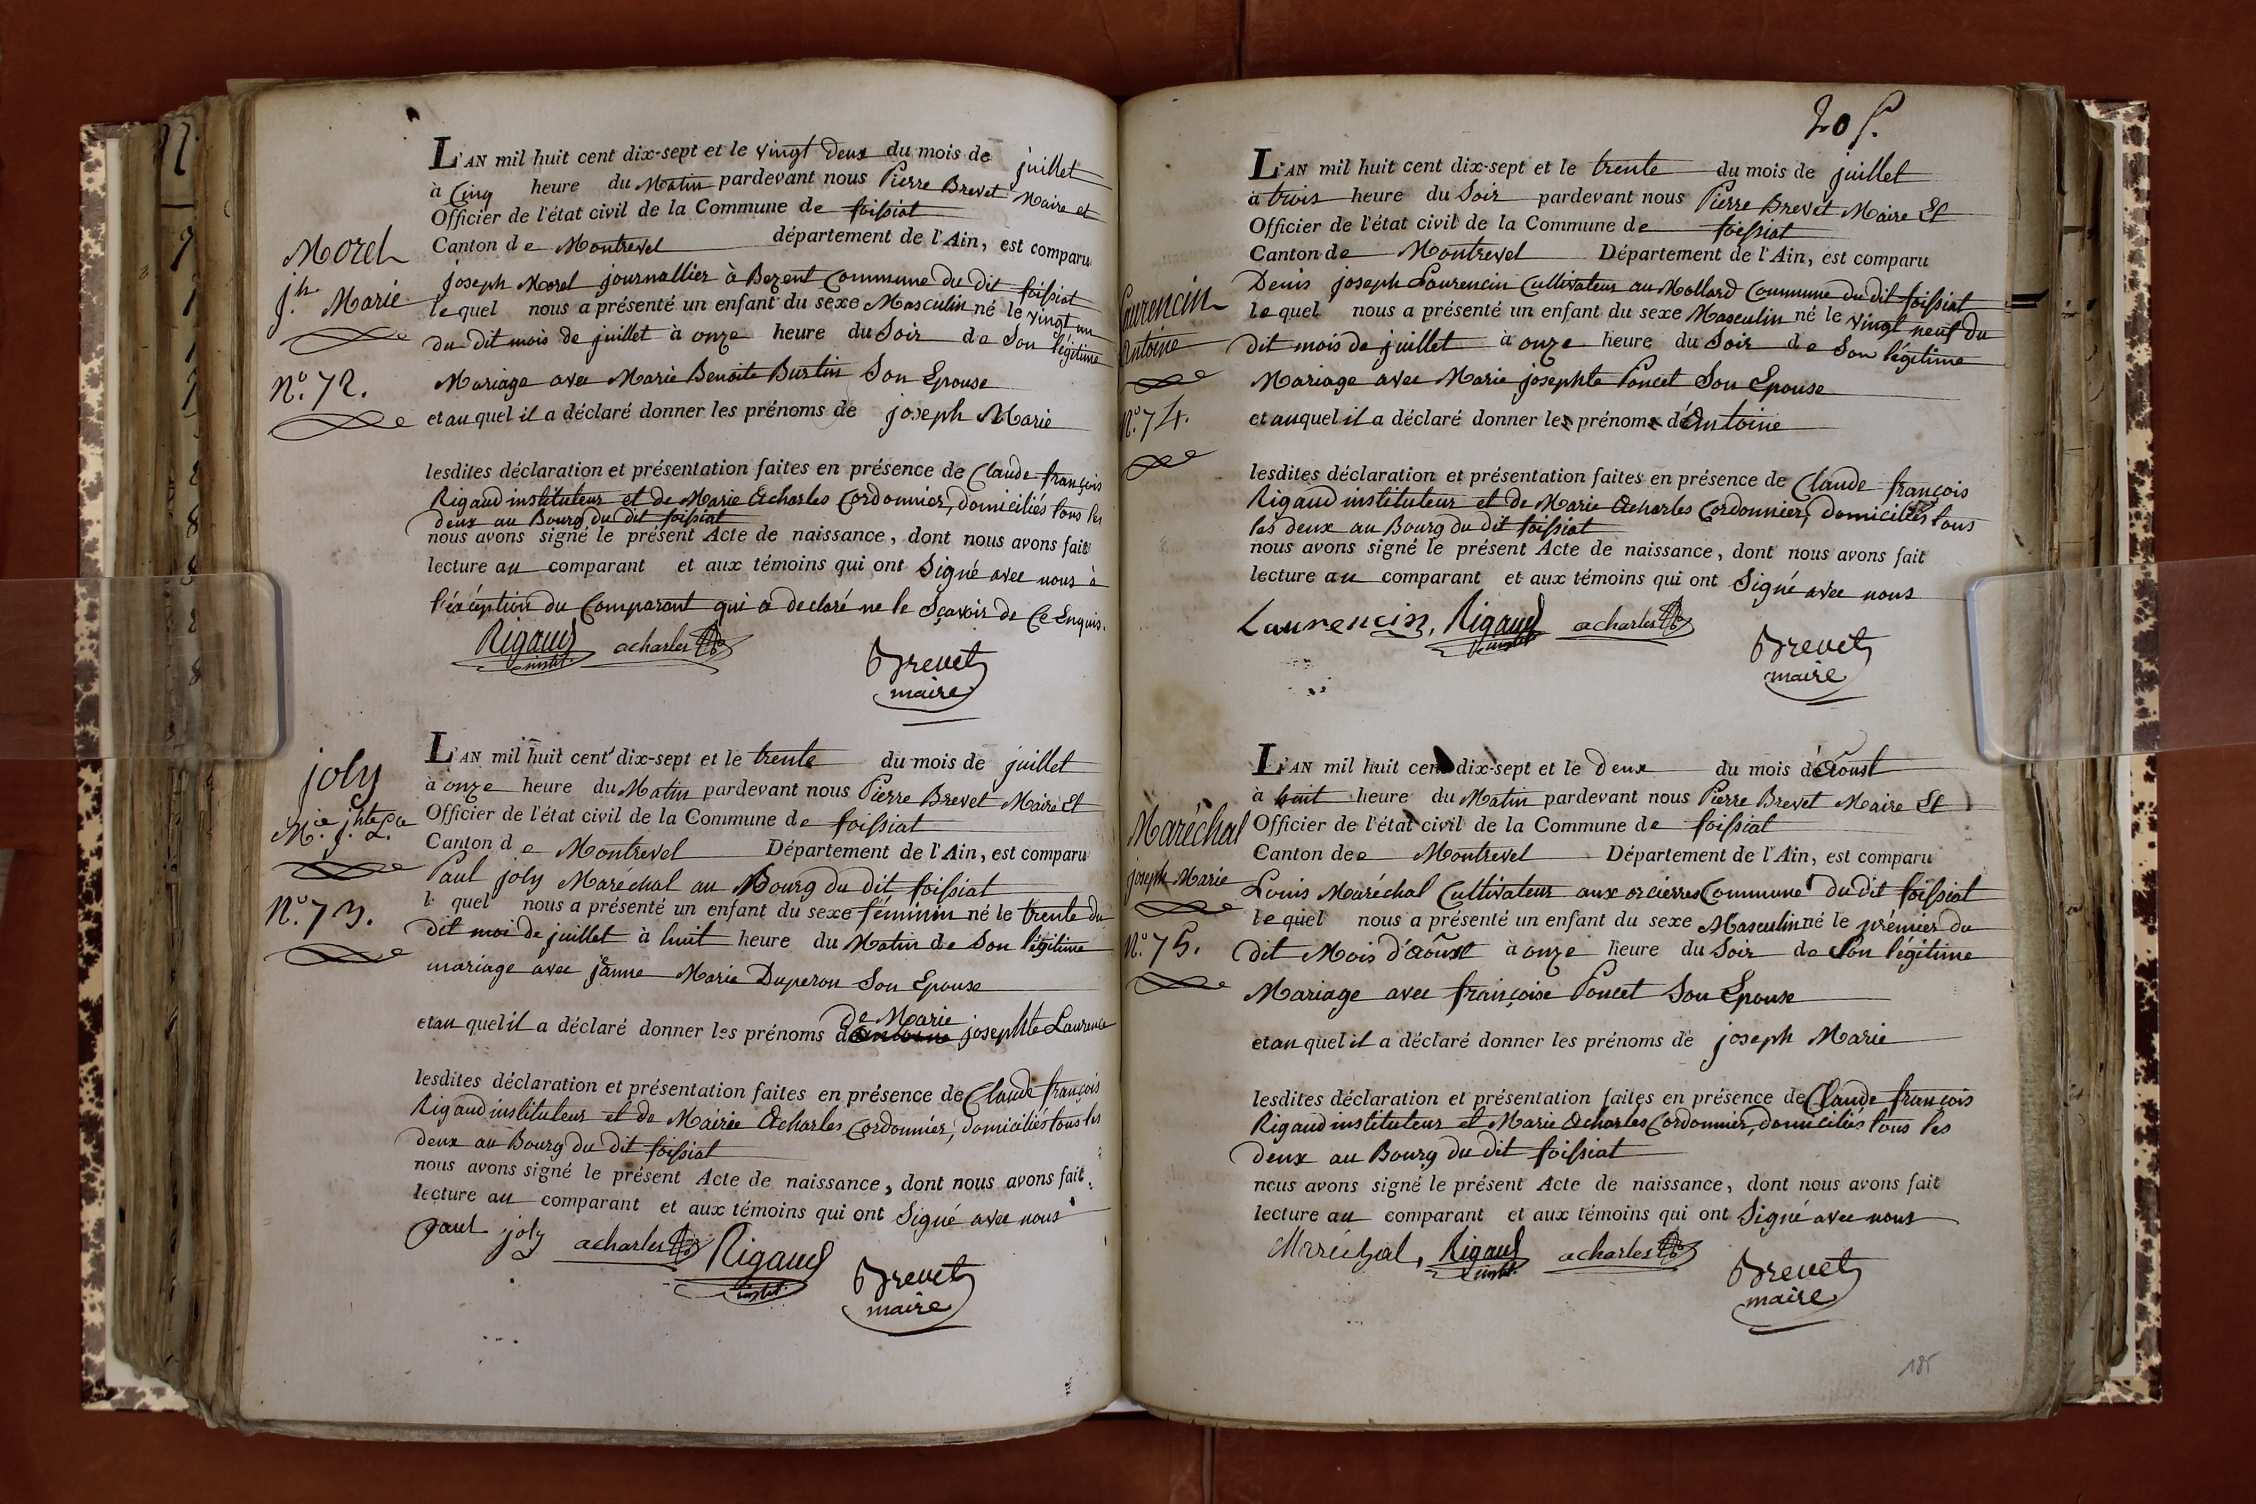 Morel
jh. Marie
N.° 72.
L'AN mil huit cent dix-sept et le vingt deux du mois de juillet
à Cinq heure du Matin pardevant nous Pierre Brevet Maire et
Officier de l'état civil de la Commune de foissiat
Canton de Montrevel département de l'Ain, est comparu
joseph Morel journallier à Bezent Commune du dit foissiat
lequel nous a présenté un enfant du sexe Masculin né le vingt un
du dit mois de juillet à onze heure du Soir de Son légitime
Mariage avec Marie Benoite Burtin Son Epouse
et auquel il a déclaré donner les prénoms de joseph Marie
lesdites déclaration et présentation faites en présence de Claude françois
Rigaud instituteur et de Marie Acharles Cordonnier, domiciliés tous les
deux au Bourg du dit foissiat
nous avons signé le présent Acte de naissance, dont nous avons fait
lecture au comparant et aux témoins qui ont Signé avec nous à
l'éxception du Comparant qui a declaré ne le Sçavoir de Ce Enquis.
Rigaud instit. acharles
Brevet
maire
joly
M.ie j.hte L.ce
N.° 73.
L'AN mil huit cent dix-sept et le trente du mois de juillet
à onze heure du Matin pardevant nous Pierre Brevet Maire Et
Officier de l'état civil de la Commune de foissiat
Canton de Montrevel Département de l'Ain, est comparu
Paul joly Maréchal au Bourg du dit foissiat
l quel nous a présenté un enfant du sexe féminin né le trente du
dit moi de juillet à huit heure du Matin de Son légitime
mariage avec jeanne Marie Duperon Son Epouse
de Marie
et au quel il a déclaré donner les prénoms d josephte Laurence
lesdites déclaration et présentation faites en présence de Claude françois
Rigaud instituteur et de Mairie Acharles Cordonnier, domiciliés tous les
deux au Bourg du dit foissiat
nous avons signé le présent Acte de naissance, dont nous avons fait
lecture au comparant et aux témoins qui ont Signé avec nous
paul joly acharles Rigaud instit.
Brevet
maire
205.
Laurencin
Antoine
N.° 74.
L'AN mil huit cent dix-sept et le trente du mois de juillet
à trois heure du Soir pardevant nous Pierre Brevet Maire Et
Officier de l'état civil de la Commune de foissiat
Canton de Montrevel Département de l'Ain, est comparu
Denis joseph Laurencin Cultivateur au Mollard Commune du dit foissiat
lequel nous a présenté un enfant du sexe Masculin né le vingt neuf du
dit mois de juillet à onze heure du Soir de Son légitime
Mariage avec Marie josephte Poncet Son Epouse
et auquel il a déclaré donner les prénoms d'Antoine
lesdites déclaration et présentation faites en présence de Claude françois
Rigaud instituteur et de Marie Acharles Cordonnier, domiciliés tous
les deux au Bourg du dit foissiat
nous avons signé le présent Acte de naissance, dont nous avons fait
lecture au comparant et aux témoins qui ont Signé avec nous
Laurencin, Rigaud instit acharles
Brevet
maire
Maréchal
joseph Marie
N.° 75.
L'AN mil huit cent dix-sept et le deux du mois d'Aoust
à huit heure du Matin pardevant nous Pierre Brevet Maire Et
Officier de l'état civil de la Commune de foissiat
Canton dee Montrevel Département de l'Ain, est comparu
Louis Maréchal Cultivateur aux orcierres Commune du dit foissiat
lequel nous a présenté un enfant du sexe Masculin né le prémier du
dit Mois d'Aoûst à onze heure du Soir de Son légitime
Mariage avec françoise Poncet Son Epouse
et au quel il a déclaré donner les prénoms de joseph Marie
lesdites déclaration et présentation faites en présence de Claude françois
Rigaud instituteur et Marie Acharles Cordonnier, domiciliés tous les
deux au Bourg du dit foissiat
nous avons signé le présent Acte de naissance, dont nous avons fait
lecture au comparant et aux témoins qui ont Signé avec nous
Maréchal, Rigaud instit. acharles
Brevet
maire
185